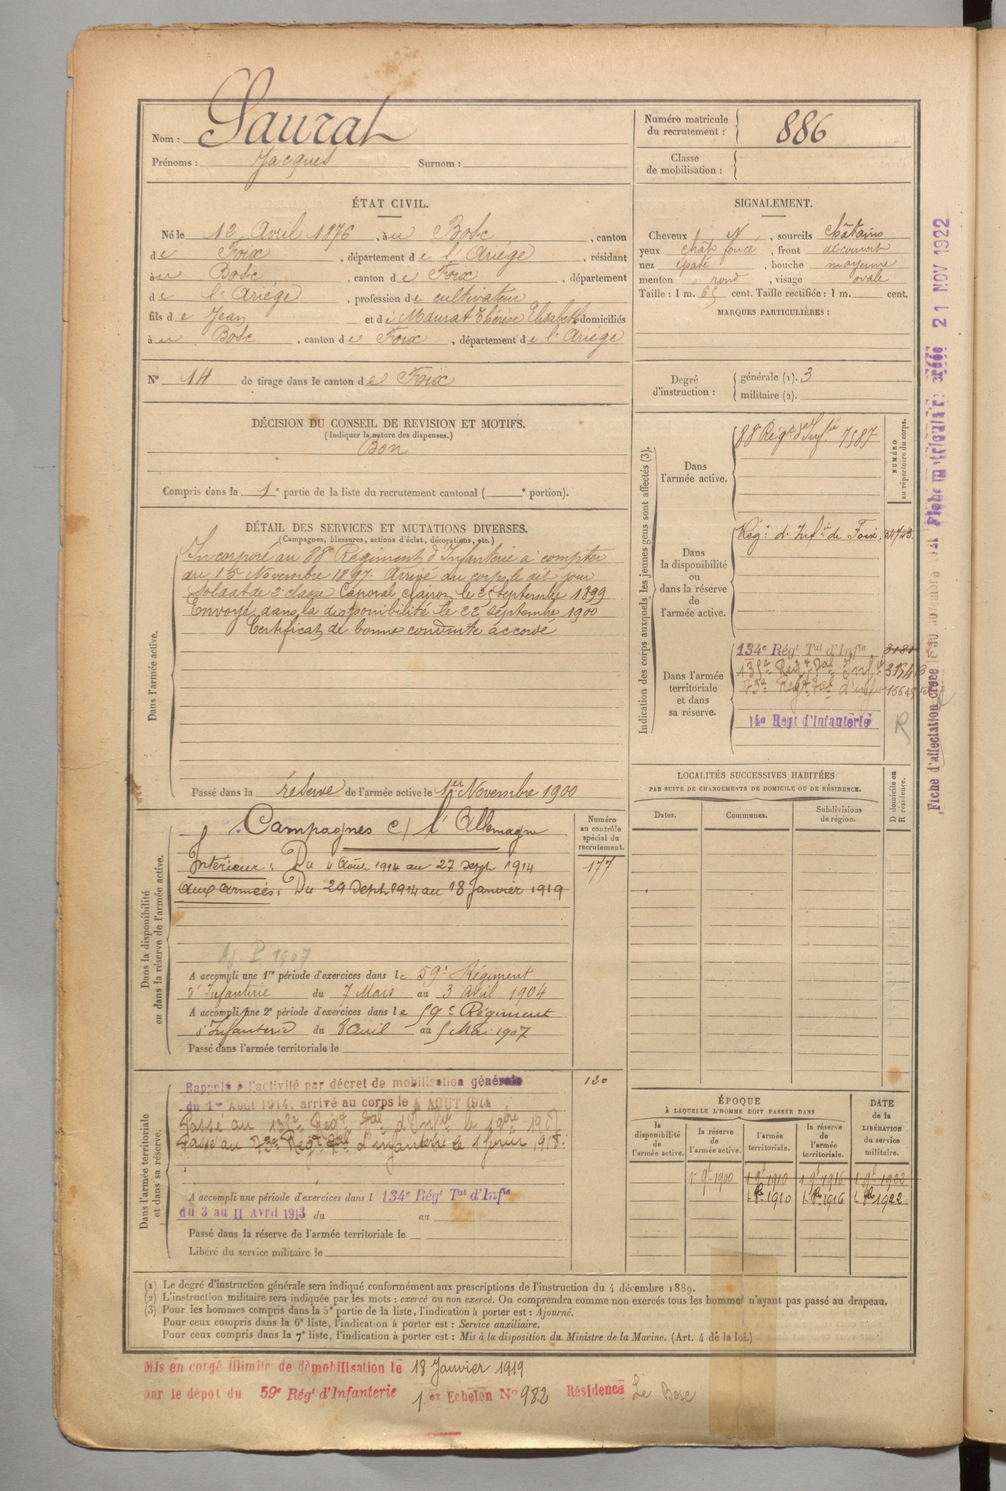 Nom : Saurat
Prénoms : Jacques Surnom :
Numéro matricule du recrutement : 886
Classe de mobilisation :
ÉTAT CIVIL.
Né le 12 Avril 1876, à u Bosc, canton
d e Foix, département d e l'Ariège, résidant
à u Bosc, canton d e Foix, département
d e l'Ariège, profession d e cultivateur
fils d e Jean et d e Maurat Thérèse Elisabeth domiciliés
à u Bosc, canton d e Foix, département d e l'Ariège
N° 14 de tirage dans le canton d e Foix
SIGNALEMENT.
Cheveux N, sourcils châtains
yeux chât foncé, front découvert
nez épaté, bouche moyenne
menton rond, visage ovale
Taille : 1 m. 65 cent. Taille rectifiée : 1 m. cent.
MARQUES PARTICULIÈRES :
Degré d'instruction : générale (1). 3
militaire (2).
DÉCISION DU CONSEIL DE REVISION ET MOTIFS.
(Indiquer la nature des dispenses.)
Bon
Compris dans la 1e partie de la liste du recrutement cantonal ( e portion).
DÉTAIL DES SERVICES ET MUTATIONS DIVERSES.
(Campagnes, blessures, actions d'éclat, décorations, etc.)
Dans l'armée active.
Incorporé au 88e Régiment d'Infanterie à compter
du 15 Novembre 1897. Arrivé au corps le dit jour
soldat de 2e classe Caporal clairon le 25 septembre 1899
Envoyé dans la disponibilité le 22 septembre 1900
Certificat de bonne conduite accordé
Passé dans la réserve de l'armée active le 1er Novembre 1900
Indication des corps auxquels les jeunes gens sont affectés (3).
NUMÉRO au répertoire du corps.
Dans l'armée active.
88 Régt d'Infie 7587
Dans la disponibilité ou dans la réserve de l'armée active.
Régt d'Infie de Foix
Dans l'armée territoriale et dans sa réserve.
134e Régt Tal d'Infie
135e Régt Tal Infie
73e Régt Tal d'Infie
14e Regt d'Infanterie
R
Fiche d'affectation créée le 30 novembre
Fiche matriculaire créée 21 NOV 1922
LOCALITÉS SUCCESSIVES HABITÉES
PAR SUITE DE CHANGEMENTS DE DOMICILE OU DE RÉSIDENCE.
Dates.
Communes.
Subdivisions de région.
D domicile ou R résidence.
Dans la disponibilité ou dans la réserve de l'armée active.
Numéro au contrôle spécial du recrutement.
177
Campagnes c/ l'Allemagne
Intérieur : Du 4 Août 1914 au 27 Sept 1914
aux armées : Du 29 Sept 1914 au 18 Janvier 1919
1907
A accompli une 1re période d'exercices dans le 59e Régiment
d'Infanterie du 7 Mars au 3 Avril 1904
A accompli une 2e période d'exercices dans le 59e Régiment
d'Infanterie du 8 avril au 5 Mai 1907
Passé dans l'armée territoriale le
Dans l'armée territoriale et dans sa réserve.
120
Rappelé à l'activité par décret de mobilisation générale
du 1er Août 1914, arrivé au corps le 4 AOUT 1914
Passé au 135e Régt Tal d'Infie le
Passé au 73e Régt Tal d'infanterie le 1 février 1918.
A accompli une période d'exercices dans l 134e Régt Tal d'Infie
du 3 au 11 Avril 1913 du au
Passé dans la réserve de l'armée territoriale le
Libéré du service militaire le
ÉPOQUE
À LAQUELLE L'HOMME DOIT PASSER DANS
la disponibilité de l'armée active.
la réserve de l'armée active.
l'armée territoriale.
la réserve de l'armée territoriale.
DATE de la LIBÉRATION du service militaire.
1er 9bre 1900 1er 9bre 1910 1er 9bre 1916 1er 9bre 1922
1er 8bre 1910 1er 8bre 1916 1er 8bre 1922
(1) Le degré d'instruction générale sera indiqué conformément aux prescriptions de l'instruction du 4 décembre 1889.
(2) L'instruction militaire sera indiquée par les mots : exercé ou non exercé. On comprendra comme non exercés tous les hommes n'ayant pas passé au drapeau.
(3) Pour les hommes compris dans la 5e partie de la liste, l'indication à porter est : Ajourné.
Pour ceux compris dans la 6e liste, l'indication à porter est : Service auxiliaire.
Pour ceux compris dans la 7e liste, l'indication à porter est : Mis à la disposition du Ministre de la Marine. (Art. 4 de la loi.)
Mis en congé illimité de démobilisation le 18 Janvier 1919
par le dépôt du 59e Régt d'Infanterie 1er Echelon N° 982 Résidence Le Bosc